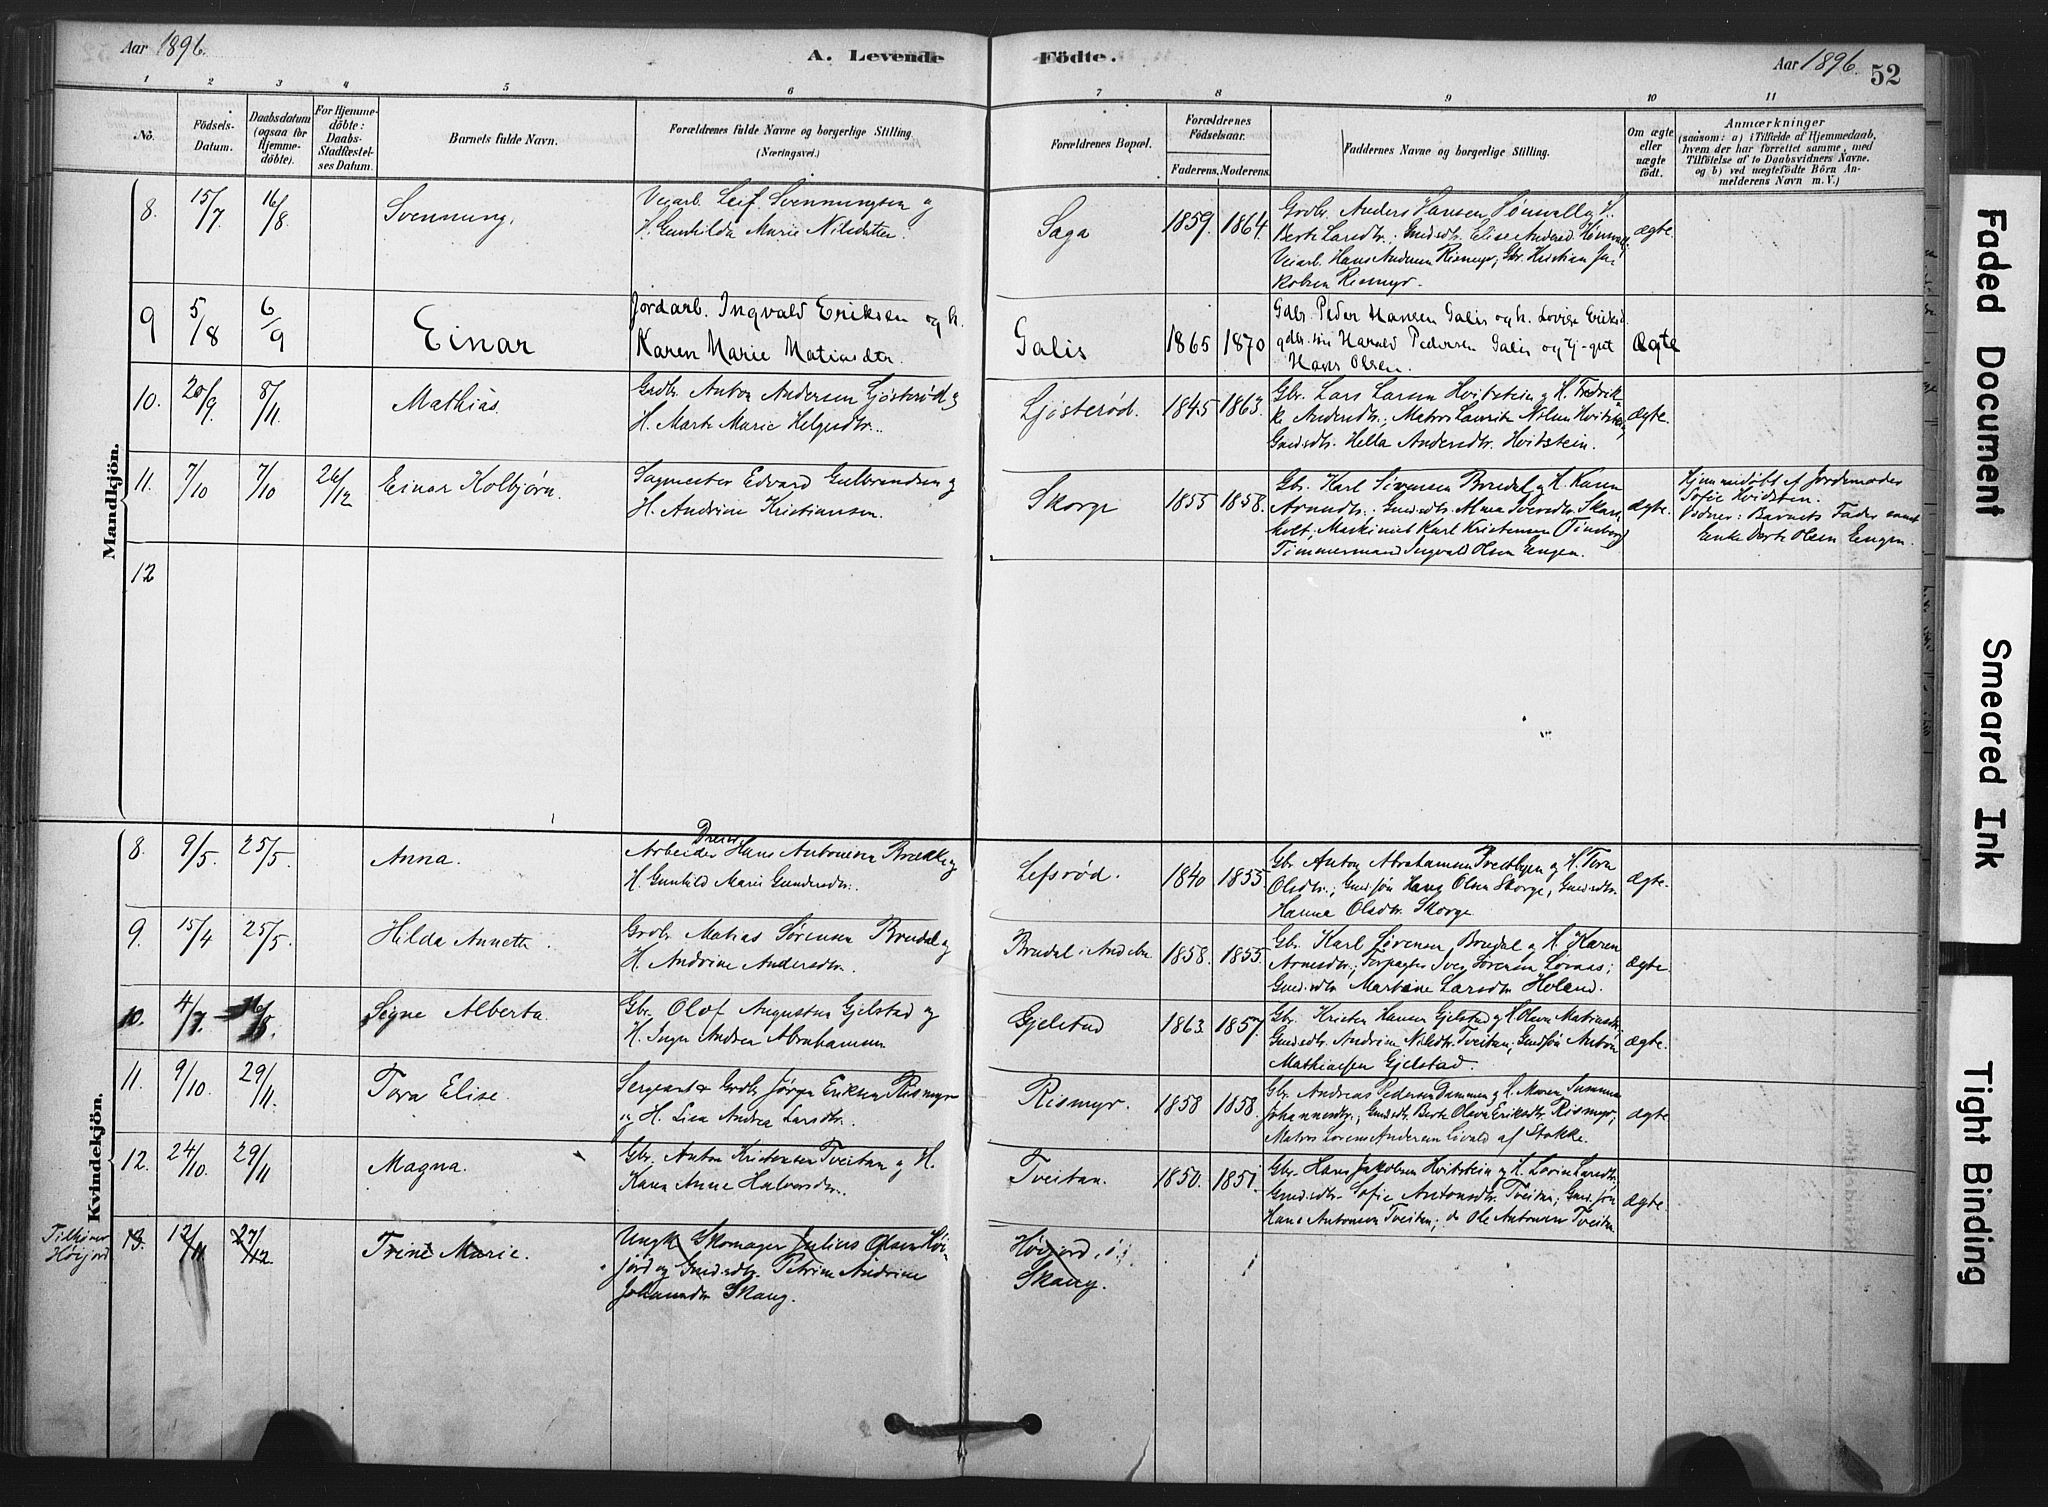 Aar 1896.
A. Levende
Födte.
Aar 1896.
52
1 2 3 4 5 6 7 8 9 10 11
No.
Födsels-
Datum.
Daabsdatum
(ogsaa for
Hjemme-
döbte).
For Hjemme-
döbte:
Daabs-
Stadfæstel-
ses Datum.
Barnets fulde Navn.
Forældrenes fulde Navne og borgerlige Stilling.
(Næringsvei.)
Forældrenes Bopæl.
Forældrenes
Födselsaar.
Faderens. Moderens.
Faddernes Navne og borgerlige Stilling.
Om ægte
eller
uægte
födt.
Anmærkninger
(saasom: a) i Tilfælde af Hjemmedaab,
hvem der har forrettet samme, med
Tilföielse af to Daabsvidners Navne.
og b) ved uægtefödte Börn An-
melderens Navn m. V.)
Mandkjön.
8. 15/7 16/8 Svennung.
Veiarb. Leif Svennungsen og
H. Gunhilda Marie Nilsdatter.
Saga 1859. 1864.
Grdbr. Anders Hansen
Berte Larsdtr.; Gmdsdtr. Elise Andersd.
Veiarb. Hans Andersen Rismyr; Gbr. Kristian Ja-
kobsen Rismyr.
ægte.
9 5/8 6/9 Einar
Jordarb. Ingvald Eriksen og h.
Karen Marie Matiasdtr.
Galis 1865 1870
Gdbr. Peder Hansen Galis og h. Lovise Eriksd.
gdbr. søn Harald Pedersen Galis og tj-gut
Hans Olsen.
Ægte
10. 20/9 8/11 Mathias.
Grdbr. Anton Andersen Ljøsterød og
H. Marte Marie Helgesdtr.
Ljøsterød. 1845 1863.
Gbr. Lars Larsen Hvitstein og H. Fredrik-
ke Andersdtr.; Matros Laurits Nilsen Hvitstein,
Gmdsdtr. Hella Andersdtr. Hvitstein.
Ægte.
11. 7/10 7/10 26/12 Einar Kolbjørn.
Sagmester Edvard Gulbrandsen og
H. Andrine Kristiansen.
Skorge 1855 1858.
Gbr. Karl Sørensen Bredal og H. Karen
Arnesdtr.; Gmdsdtr. Alma Iversdtr. Skar-
holt; Maskinist Karl Kristensen
Timmermand Ingvald Olsen Engen.
ægte.
Hjemmedøbt af Jordemoder
Sofie Hvidsten.
Vidner: Barnets Fader samt
Enke Dorte Olsen Engen.
12
Kvindekjön.
8. 9/5. 25/5. Anna.
Arbeider Hans Antonsen Brække og
H. Gunhild Marie Gundersdtr.
Lefsrød. 1840 1855.
Gbr. Anton Abrahamsen og H. Tora
Olsdtr.; Gmd.søn Hans Olsen Skorge, Gmdsdtr.
Hanna Olsdtr. Skorge
Ægte.
9. 15/4 25/5. Hilda Annette.
Grdbr. Matias Sørensen Bredal og
H. Andrine Andersdtr.
Bredal i Andebu 1858. 1855.
Gbr. Karl Sørensen Bredal og H. Karen
Arnesdtr.; Forpagter Iver Sørensen
Gmdsdtr. Martine Larsdtr. Holand.
Ægte.
10. 4/7. 16/8. Signe Alberta.
Gbr. Olof Augustus Gjelstad og
H. Inger Andrea Abrahamsen
Gjelstad 1863 1857.
Gbr. Kristen Hansen Gjelstad og H. Olava Matiasdtr.
Gmdsdtr. Andrine Nilsdtr. Tveitan; Gmdsøn Anton
Mathiassen Gjelstad.
Ægte.
11. 9/10. 29/11. Tora Elise.
Sergeant & Grdbr. Jørgen Eriksen Rismyr
og H. Lisa Andrea Larsdtr.
Rismyr. 1858 1858.
Gbr. Andreas Pedersen Dammen og H. Maren
Johannesdtr.; Gmdsdtr. Berte Olava Eriksdtr. Rismyr;
Matros Lorens Andersen af Stokke.
ægte
12. 24/10. 29/11 Magna.
Gbr. Anton Kristensen Tveitan og H.
Karen Anne Halvorsdtr.
Tveitan. 1850. 1851.
Gbr. Hans Jakobsen Hvitstein og H. Lovise Larsdtr.
Gmdsdtr. Sofie Antonsdtr. Tveitan; Gmdsøn
Hans Antonsen Tveitan; do Ole Antonsen Tveitan
Ægte.
Tilhører
Høijord
13. 12/11 27/12. Trine Marie.
Ungk. Skomager Julius Olsen Høi-
jord og Gmdsdtr. Petrine Andrine
Johannsdtr Skaug.
Høijord,
Skaug.
Faded Document
Smeared Ink
Tight Binding